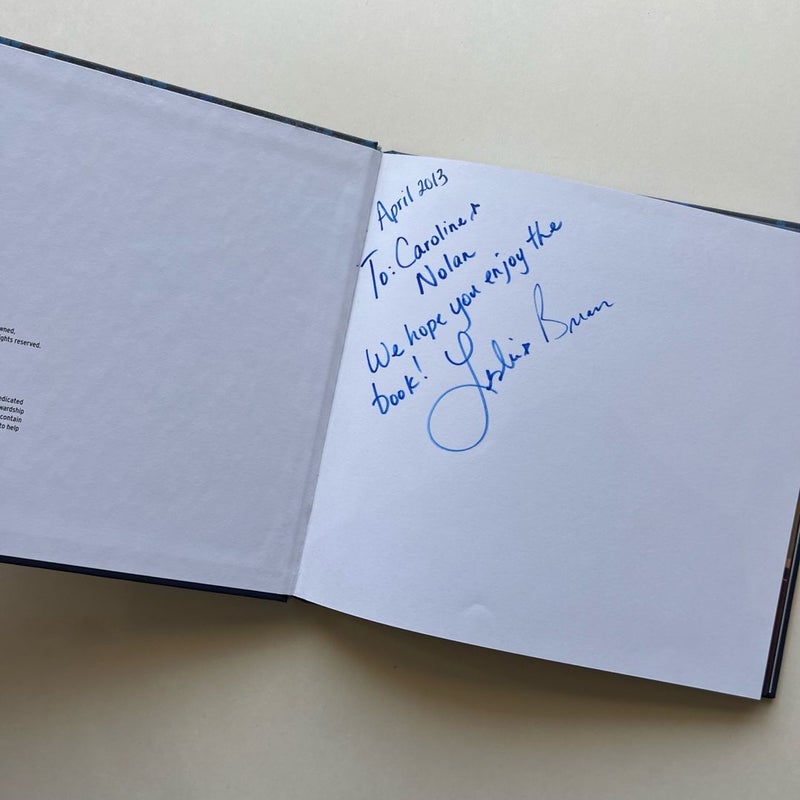 wned,
ghts reserved.
edicated
wardship
contain
to help
April 2013
To: Caroline +
Nolan
We hope you enjoy the
book! Leslie + Brian